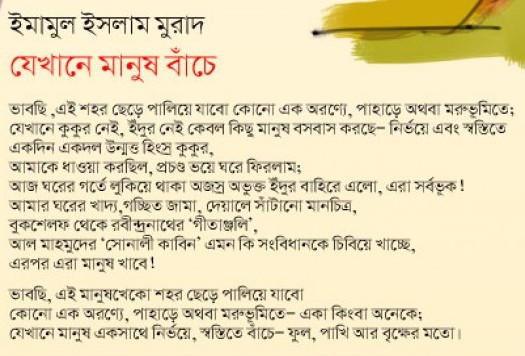 ইমামুল ইসলাম মুরাদ
যেখানে মানুষ বাঁচে
ভাবছি ,এই শহর ছেড়ে পালিয়ে যাবো কোনো এক অরণ্যে, পাহাড়ে অথবা মরুভূমিতে;
যেখানে কুকুর নেই, ইঁদুর নেই কেবল কিছু মানুষ বসবাস করছে– নির্ভয়ে এবং স্বস্তিতে
একদিন একদল উন্মত্ত হিংস্র কুকুর,
আমাকে ধাওয়া করছিল, প্রচণ্ড ভয়ে ঘরে ফিরলাম;
আজ ঘরের গর্তে লুকিয়ে থাকা অজস্র অভুক্ত ইঁদুর বাহিরে এলো, এরা সর্বভূক!
আমার ঘরের খাদ্য,গচ্ছিত জামা, দেয়ালে সাঁটানো মানচিত্র,
বুকশেলফ থেকে রবীন্দ্রনাথের ‘গীতাঞ্জলি’,
আল মাহমুদের ‘সোনালী কাবিন’ এমন কি সংবিধানকে চিবিয়ে খাচ্ছে,
এরপর এরা মানুষ খাবে!
ভাবছি, এই মানুষখেকো শহর ছেড়ে পালিয়ে যাবো
কোনো এক অরণ্যে, পাহাড়ে অথবা মরুভূমিতে– একা কিংবা অনেকে;
যেখানে মানুষ একসাথে নির্ভয়ে, স্বস্তিতে বাঁচে– ফুল, পাখি আর বৃক্ষের মতো।